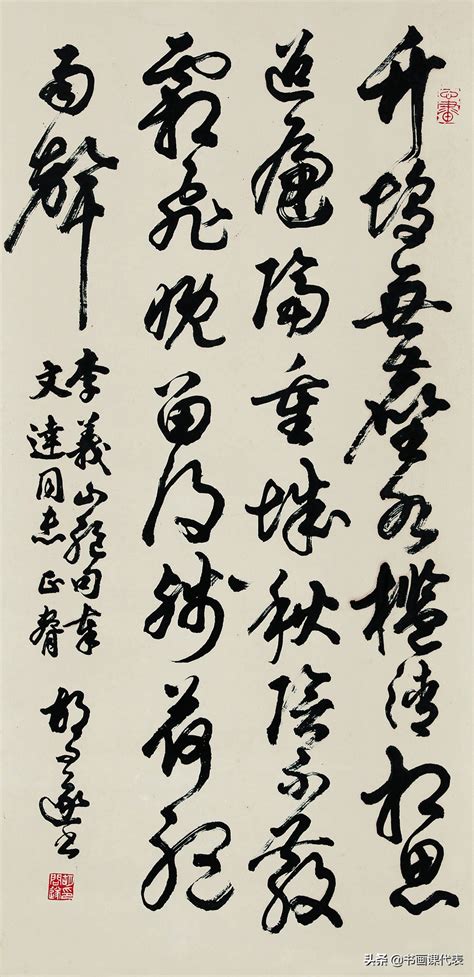 竹塢無塵水檻清相思
迢遞隔重城秋陰不散
霜飛晚留得殘荷聽
雨聲
李義山絕句奉
文達同志正
胡問遂書
头条 @书画课代表